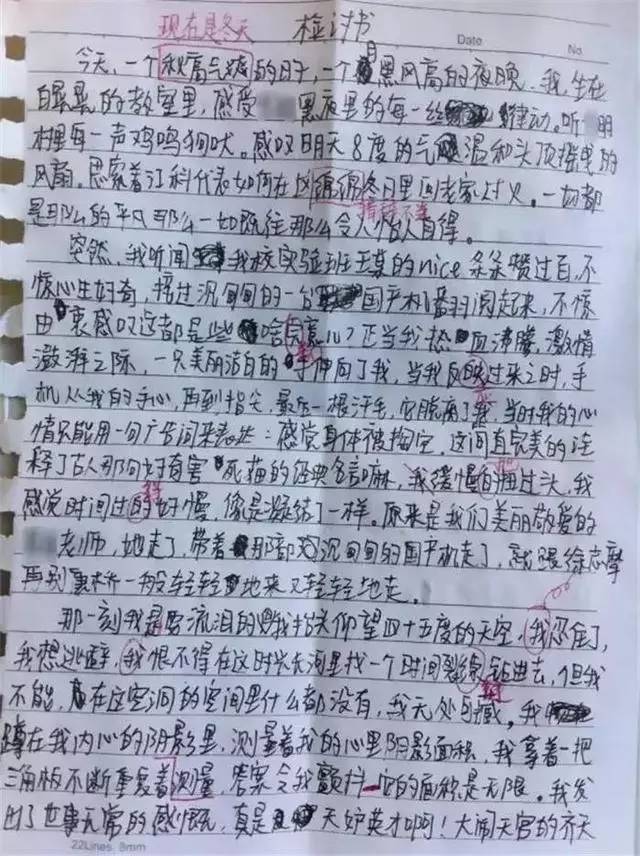 现在是冬天 检讨书
Date No.
今天,一个秋高气爽的日子,一个月黑风高的夜晚。我,坐在
的教室里,感受 黑夜里的每一丝 律动。听
村里每一声鸡鸣狗吠。感叹明天8度的气温和头顶摇曳的
风扇。思索着江科代表如何在凶 冬日里回老家过火。一切都
措辞不当
是那么的平凡那么一如既往那么令人怡人自得。
突然,我听闻 我校实验班王某的nice条条攒过百,不
惊心生好奇,掏过沉甸甸的一台 国产机翻阅起来,不惊
由衷感叹这都是些啥 意儿?正当我热血沸腾,激情
澎湃之际,一只美丽洁白的手伸向了我,当我反映过来之时,手
机从我的手心,再到指尖,最后一根汗毛,它脱离了我,当时我的心
情只能用一句广告词来表达:感觉身体被掏空,这简直完美的诠
释了古人那句好奇害死猫的经典名言嘛,我缓慢的扭过头,我
感觉时间过的好慢,像是凝结了一样。原来是我们美丽敬爱的
老师,她走了,带着那部沉甸甸的国产机走了,就跟徐志摩
再别康桥一般轻轻地来又轻轻地走。
那一刻我是要流泪的 我抬头仰望四十五度的天空,我忍住了,
我想逃避,我恨不得在这时光长河里找一个时间裂缝钻进去,但我
不能,在这空洞的空间里什么都没有,我无处可藏。我
蹲在我内心的阴影里,测量着我的心里阴影面积,我拿着一把
三角板不断重复着测量,答案令我颤抖 它的面积是无限。我发
出了世事无常的感慨,真是天妒英才啊!大闹天宫的齐天
22Lines. 8mm